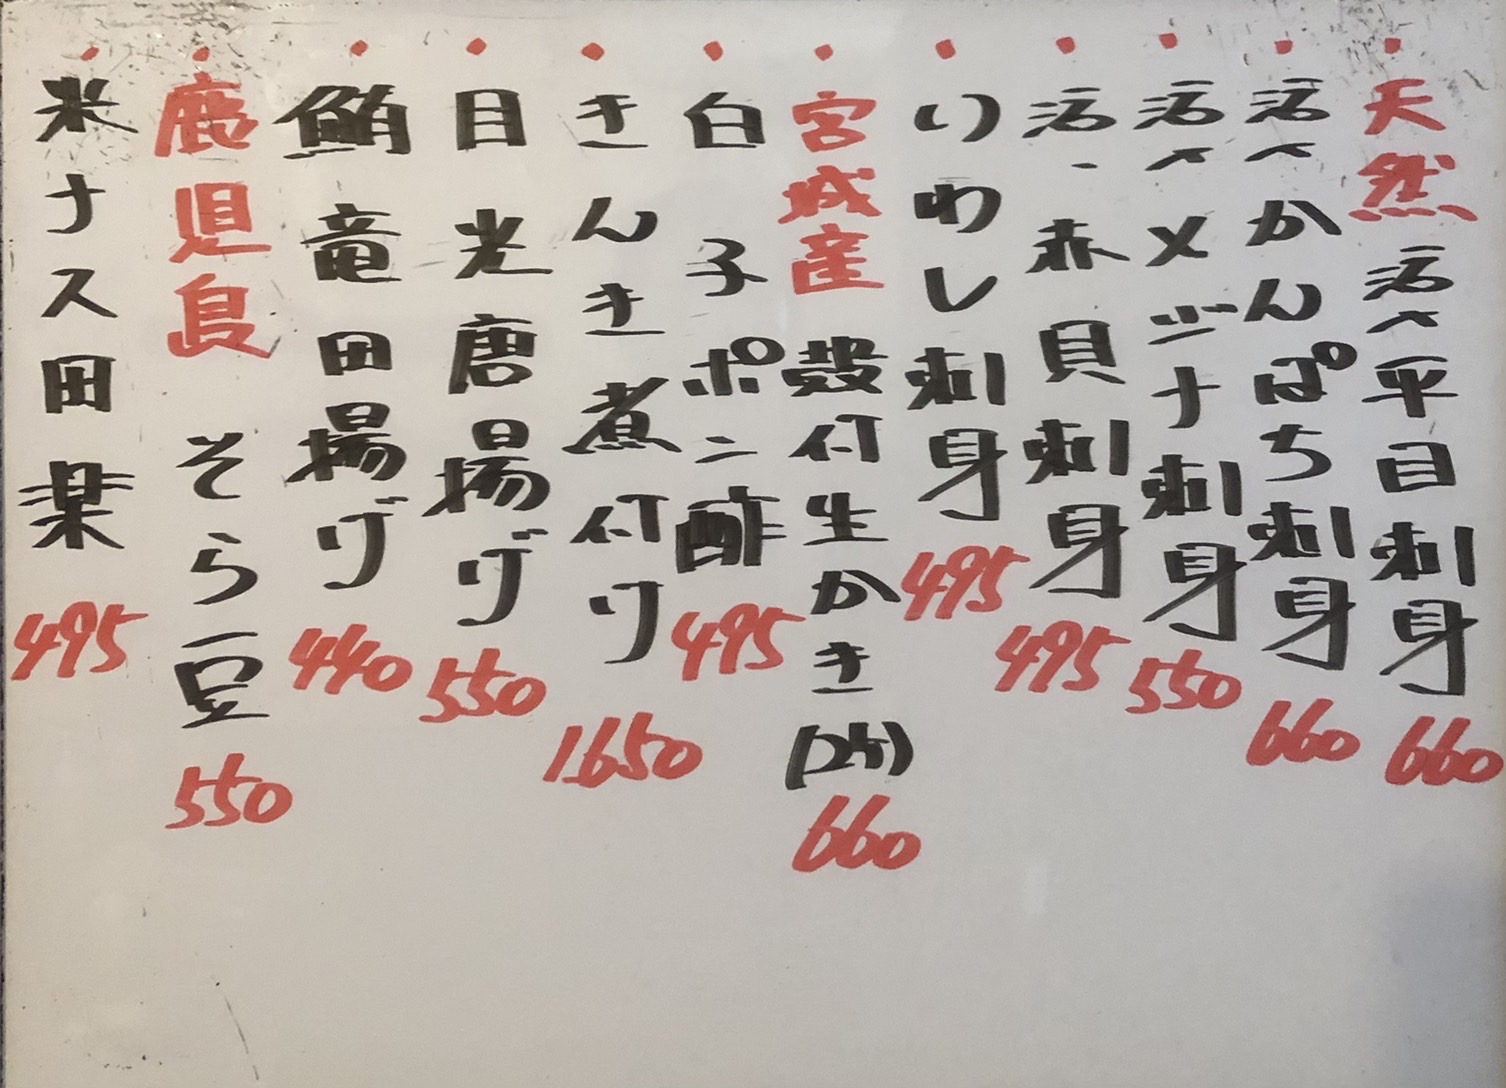 ・天然活〆平目刺身 660
・活〆かんぱち刺身 660
・活〆メジナ刺身 550
・活、赤貝刺身 495
・いわし刺身 495
・宮城産 殻付生かき(2ケ) 660
・白子ポン酢 495
・きんき煮付け 1.650
・目光唐揚げ 550
・鮪竜田揚げ 440
・鹿児島 そら豆 550
・米ナス田楽 495